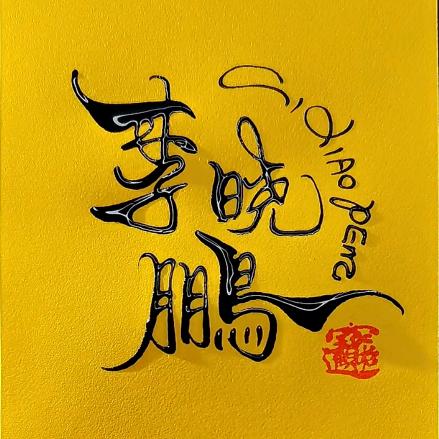 李晓
鵬
Li XIAO PENG